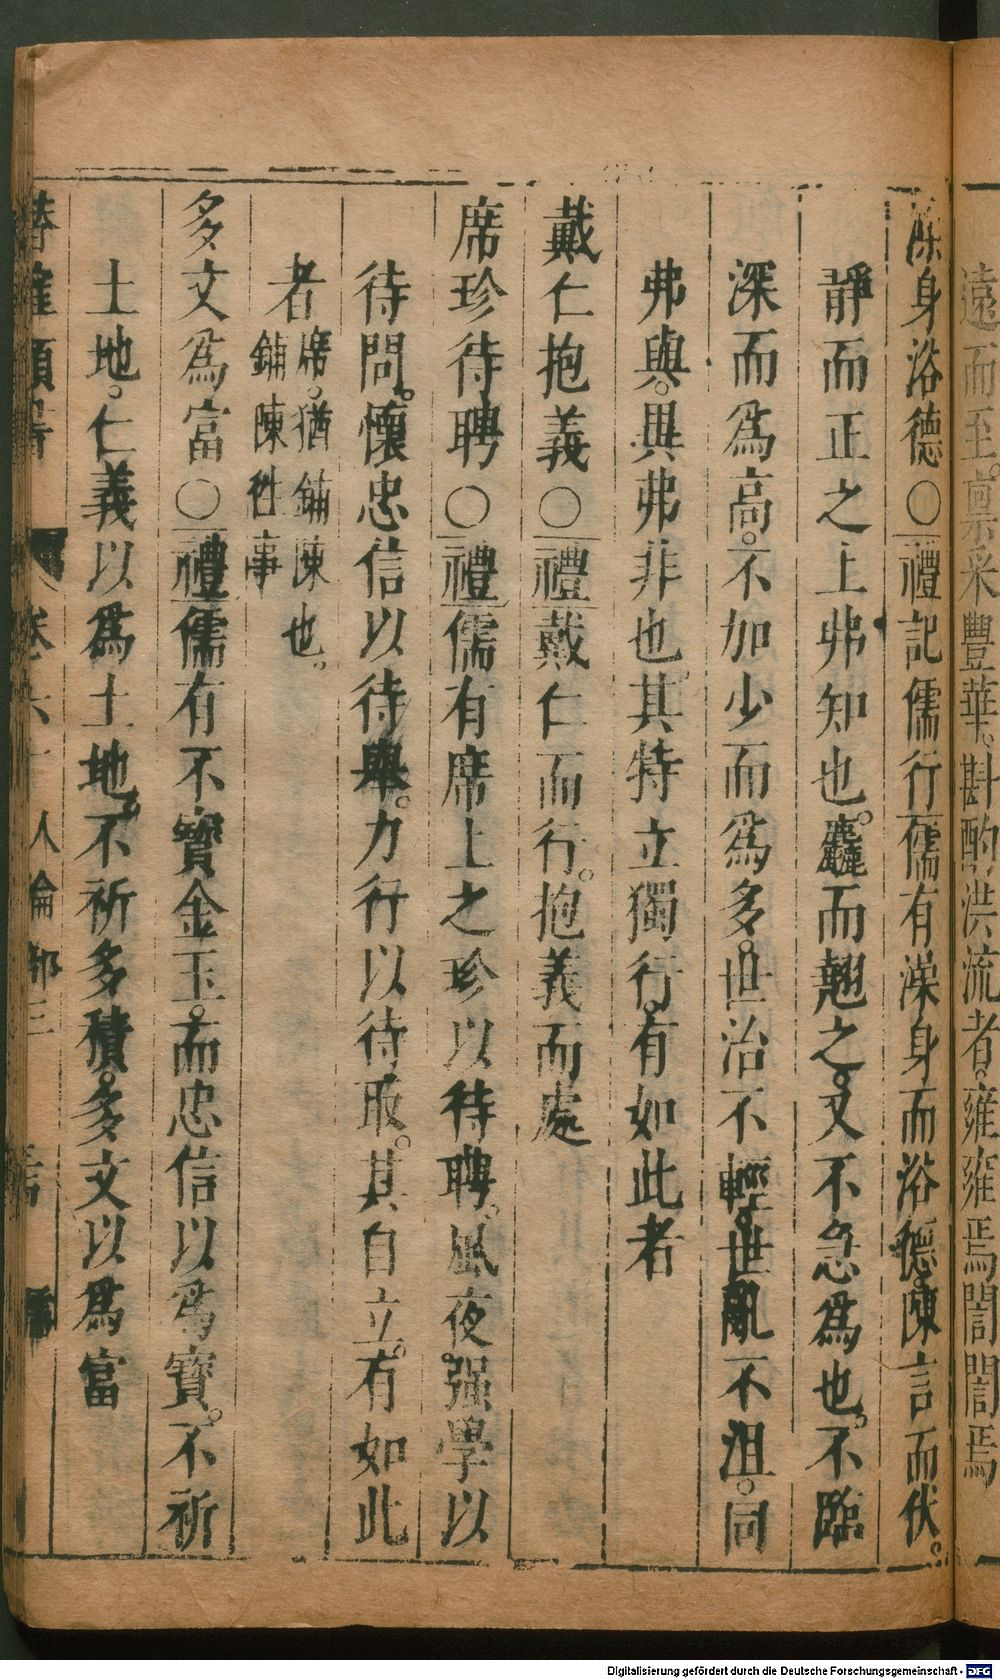 遠而至。禀采豐華。斟酌洪流者。雍雍焉誾誾焉
澡身浴德〇禮記儒行儒有澡身而浴德。陳言而伏。
靜而正之上弗知也。麤而翹之。又不急為也。不臨
深而為高。不加少而為多。世治不輕。世亂不沮。同
弗與。異弗非也。其特立獨行。有如此者
戴仁抱義〇禮戴仁而行。抱義而處
席珍待聘〇禮儒有席上之珍以待聘。夙夜强學以
待問。懷忠信以待舉。力行以待取。其自立。有如此
者席。猶鋪陳也。鋪陳徃事
多文為富〇禮儒有不寶金玉。而忠信以為寶。不祈
土地。仁義以為土地。不祈多積。多文以為富
卷六十 人倫部三
Digitalisierung gefördert durch die Deutsche Forschungsgemeinschaft - DFG